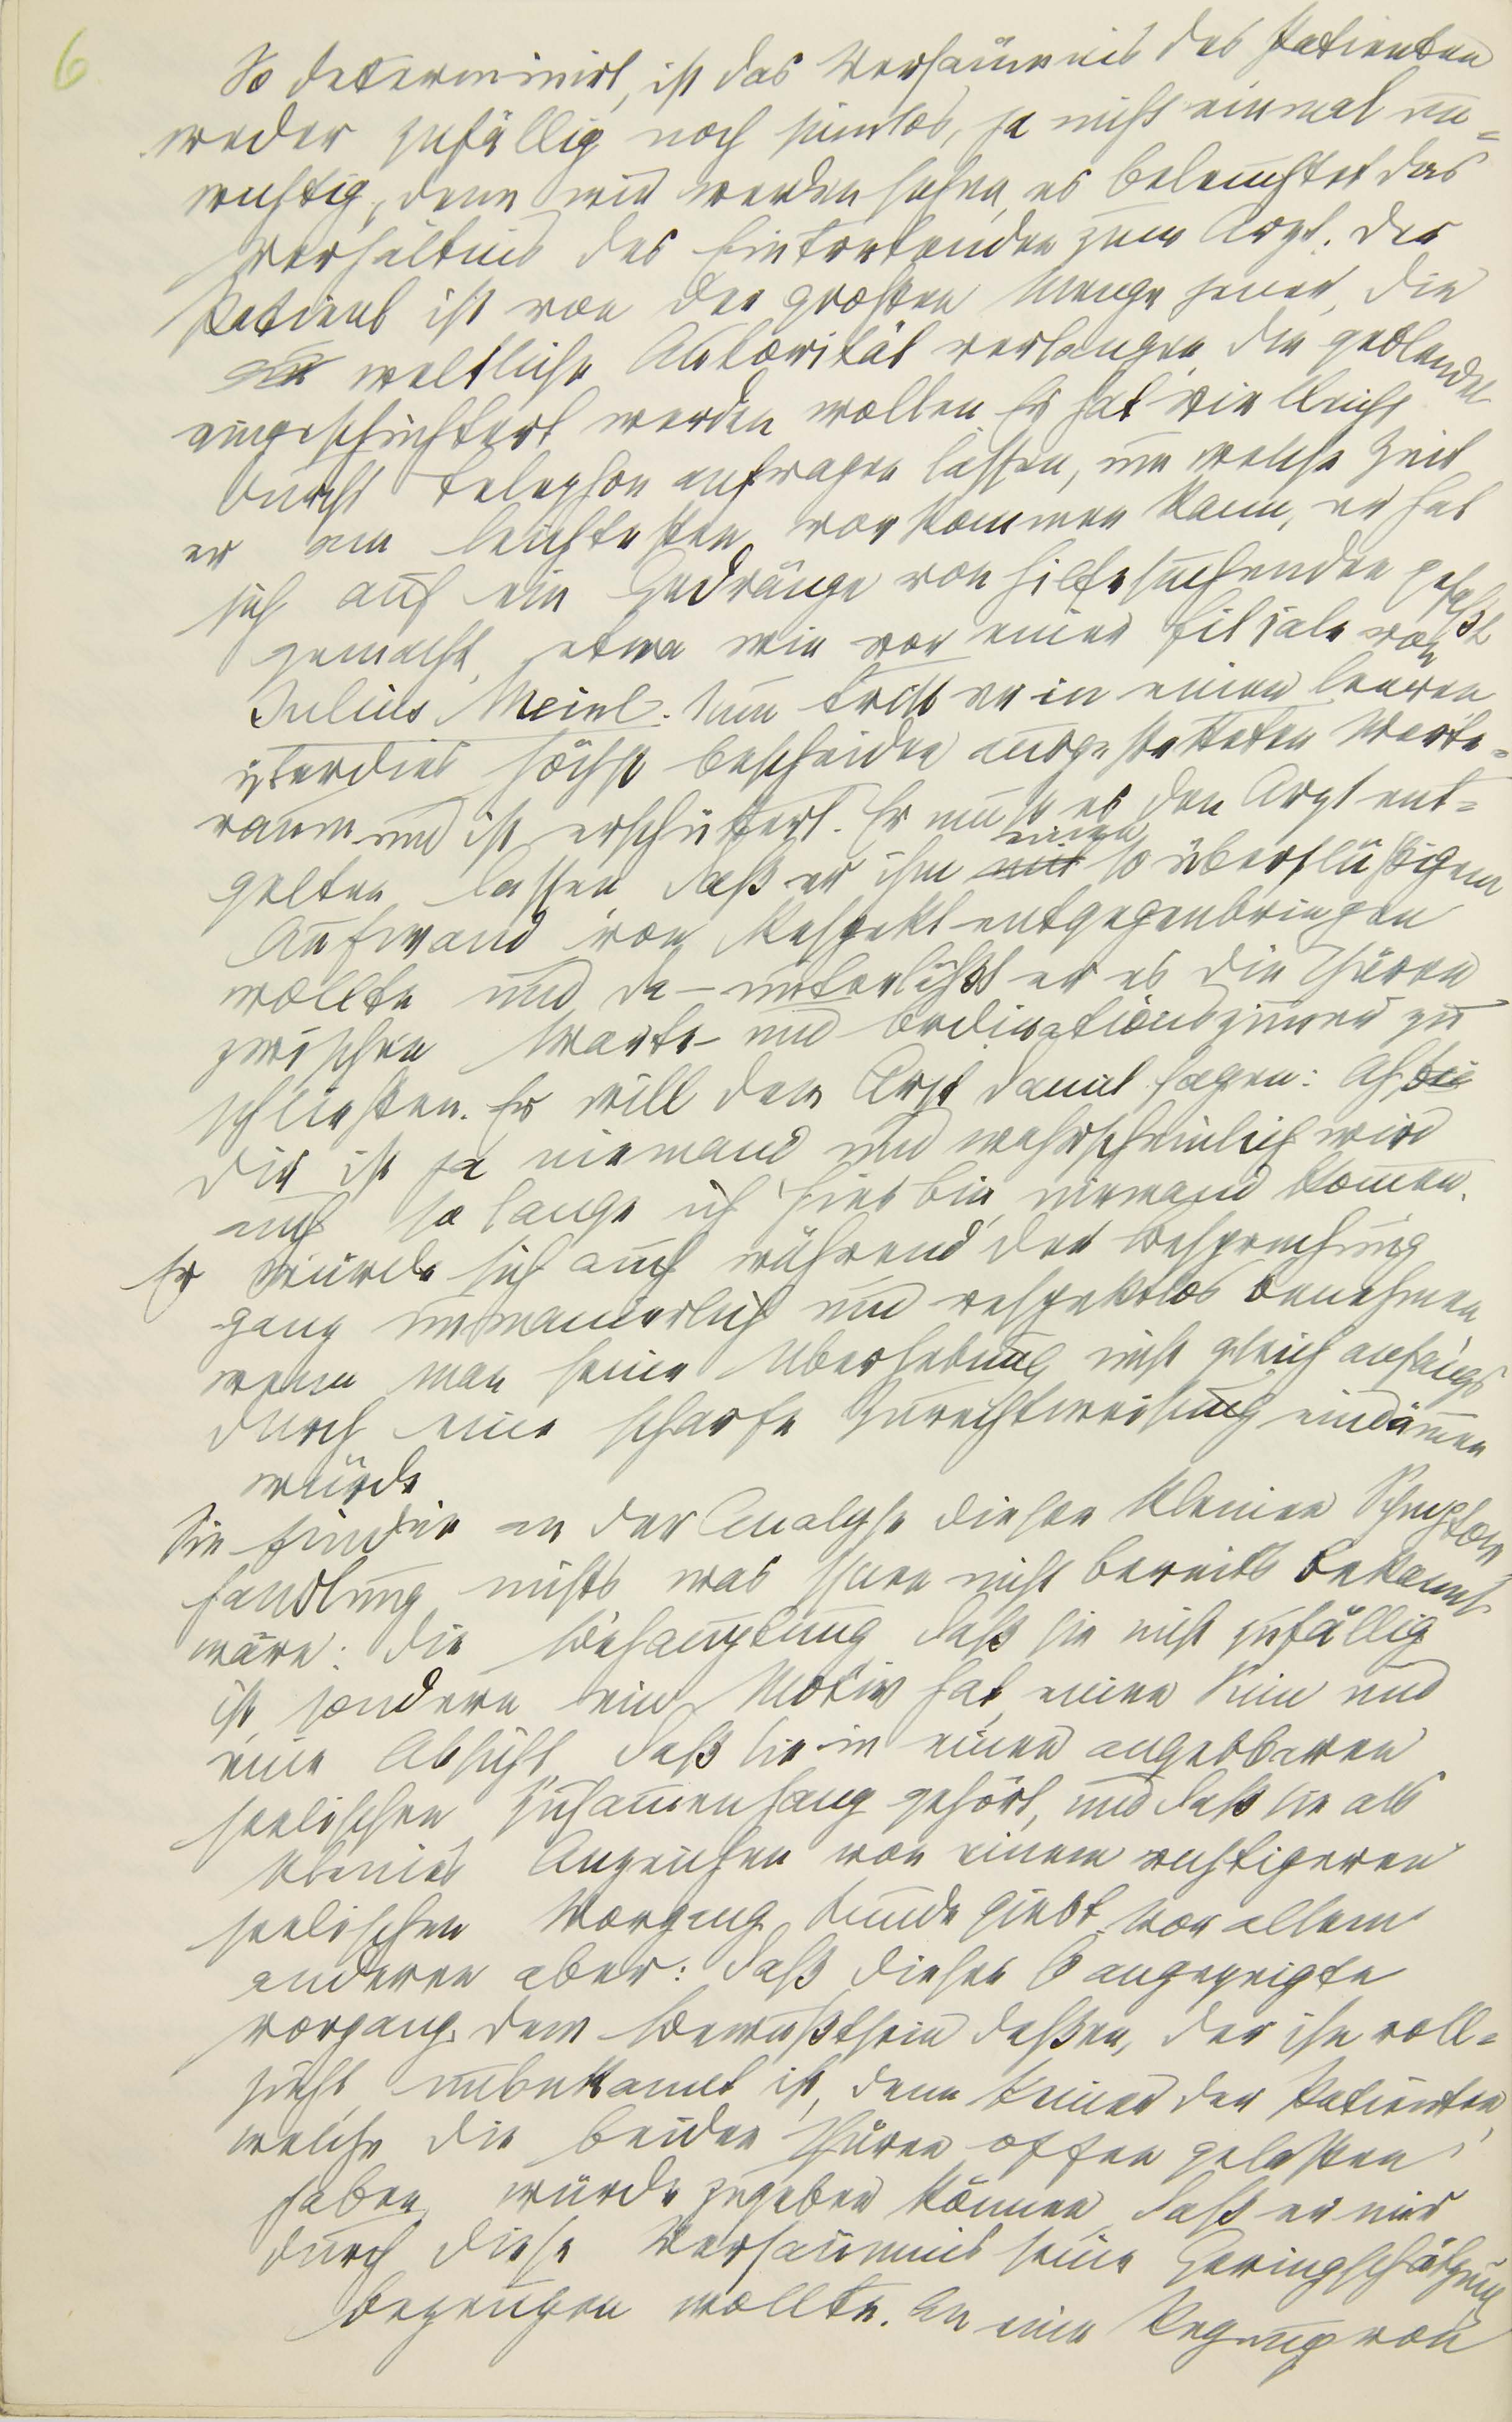 6.
So determinirt, ist das Versäumnis des Patienten
weder zufällig noch sinnlos, ja nicht einmal un=
wichtig, denn wir werden sehen, es beleuchtet das
Verhältnis des Eintretenden zum Arzt. Der
Patient ist von der großen Menge jener, die
weltliche Autorität verlangen, die geblendet
eingeschüchtert werden wollen. Er hat vielleicht
durchs Telephon anfragen lassen, um welche Zeit
er am leichtesten vorkommen kann, er hat
sich auf ein Gedränge von Hilfesuchenden gefaßt
gemacht, etwa wie vor einer Filiale von
Julius Meinl. Nun tritt er in einen leeren
überdies höchst bescheiden ausgestatteten Warte=
raum und ist erschüttert. Er muß es den Arzt ent=
gelten lassen, daß er ihm einen so überflüßigen
Aufwand von Respekt entgegenbringen
wollte und da – unterläßt er es die Thüren
zwischen Warte- und Ordinationszimmer zu
schließen. Er will dem Arzt damit sagen: Ach
hier ist ja niemand und wahrscheinlich wird
auch so lange ich hier bin, niemand kommen.
Er würde sich auch während der Besprechung
ganz unmanierlich und respektlos benehmen
wenn man seine Überhebung nicht gleich anfangs
durch eine scharfe Zurechtweisung eindämmen
würde
Sie finden an der Analyse dieser kleinen Symptom
handlung nichts was Ihnen nicht bereits bekannt
wäre: Die Behauptung, daß sie nicht zufällig
ist, sondern ein Motiv hat, einen Sinn und
eine Absicht, daß sie in einen angebbaren
seelischen Zusammenhang gehört, und daß sie als
kleines Anzeichen von einem wichtigeren
seelischen Vorgang Kunde giebt. Vor allem
anderen aber: daß dieser so angezeigte
Vorgang dem Bewußtsein deßen, der ihn voll=
zieht, unbekannt ist, denn keiner der Patienten,
welche die beiden Thüren offen gelaßen
haben, würde zugeben können, daß er mir
durch diese Versäumnis seine Geringschätzung
bezeugen wollte. An eine Regung von